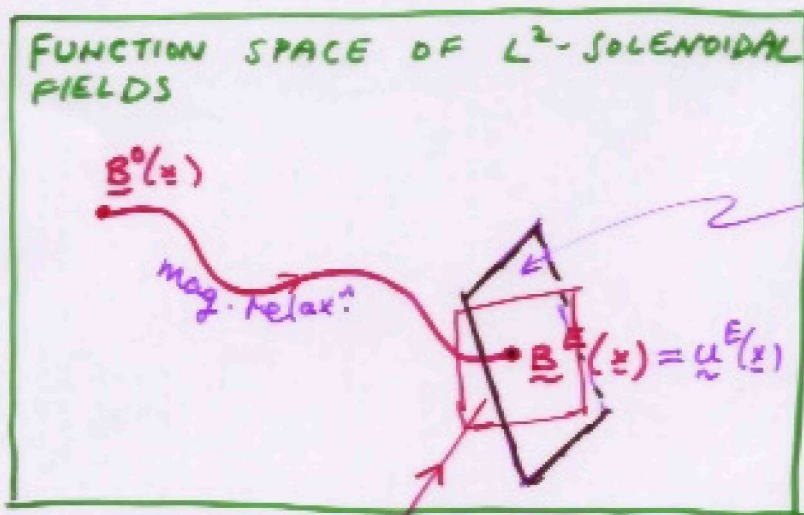 FUNCTION SPACE OF L²-SOLENOIDAL
FIELDS
B⁰(x)
mag. relaxⁿ.
B^E(x) = u^E(x)